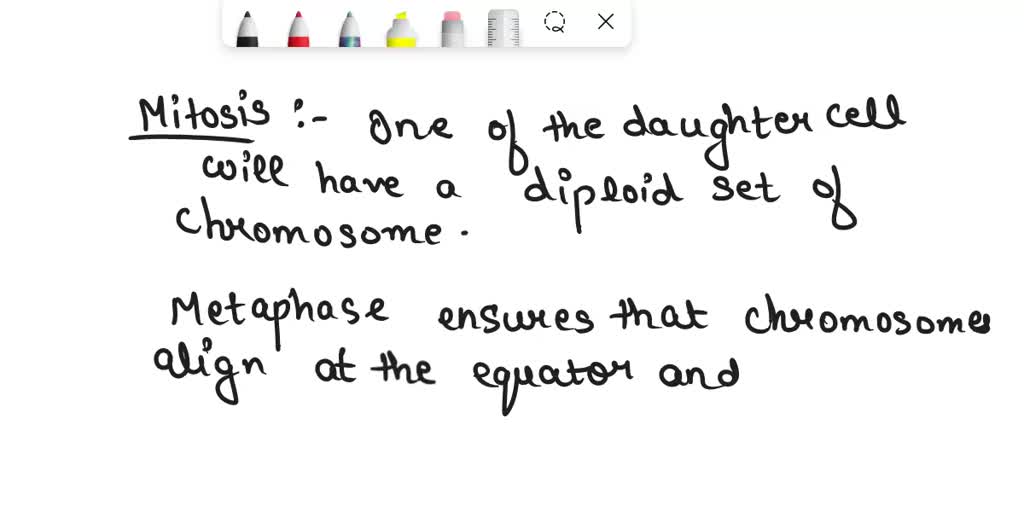 Mitosis :- One of the daughter cell
will have a diploid set of
chromosome.
Metaphase ensures that chromosomes
align at the equator and